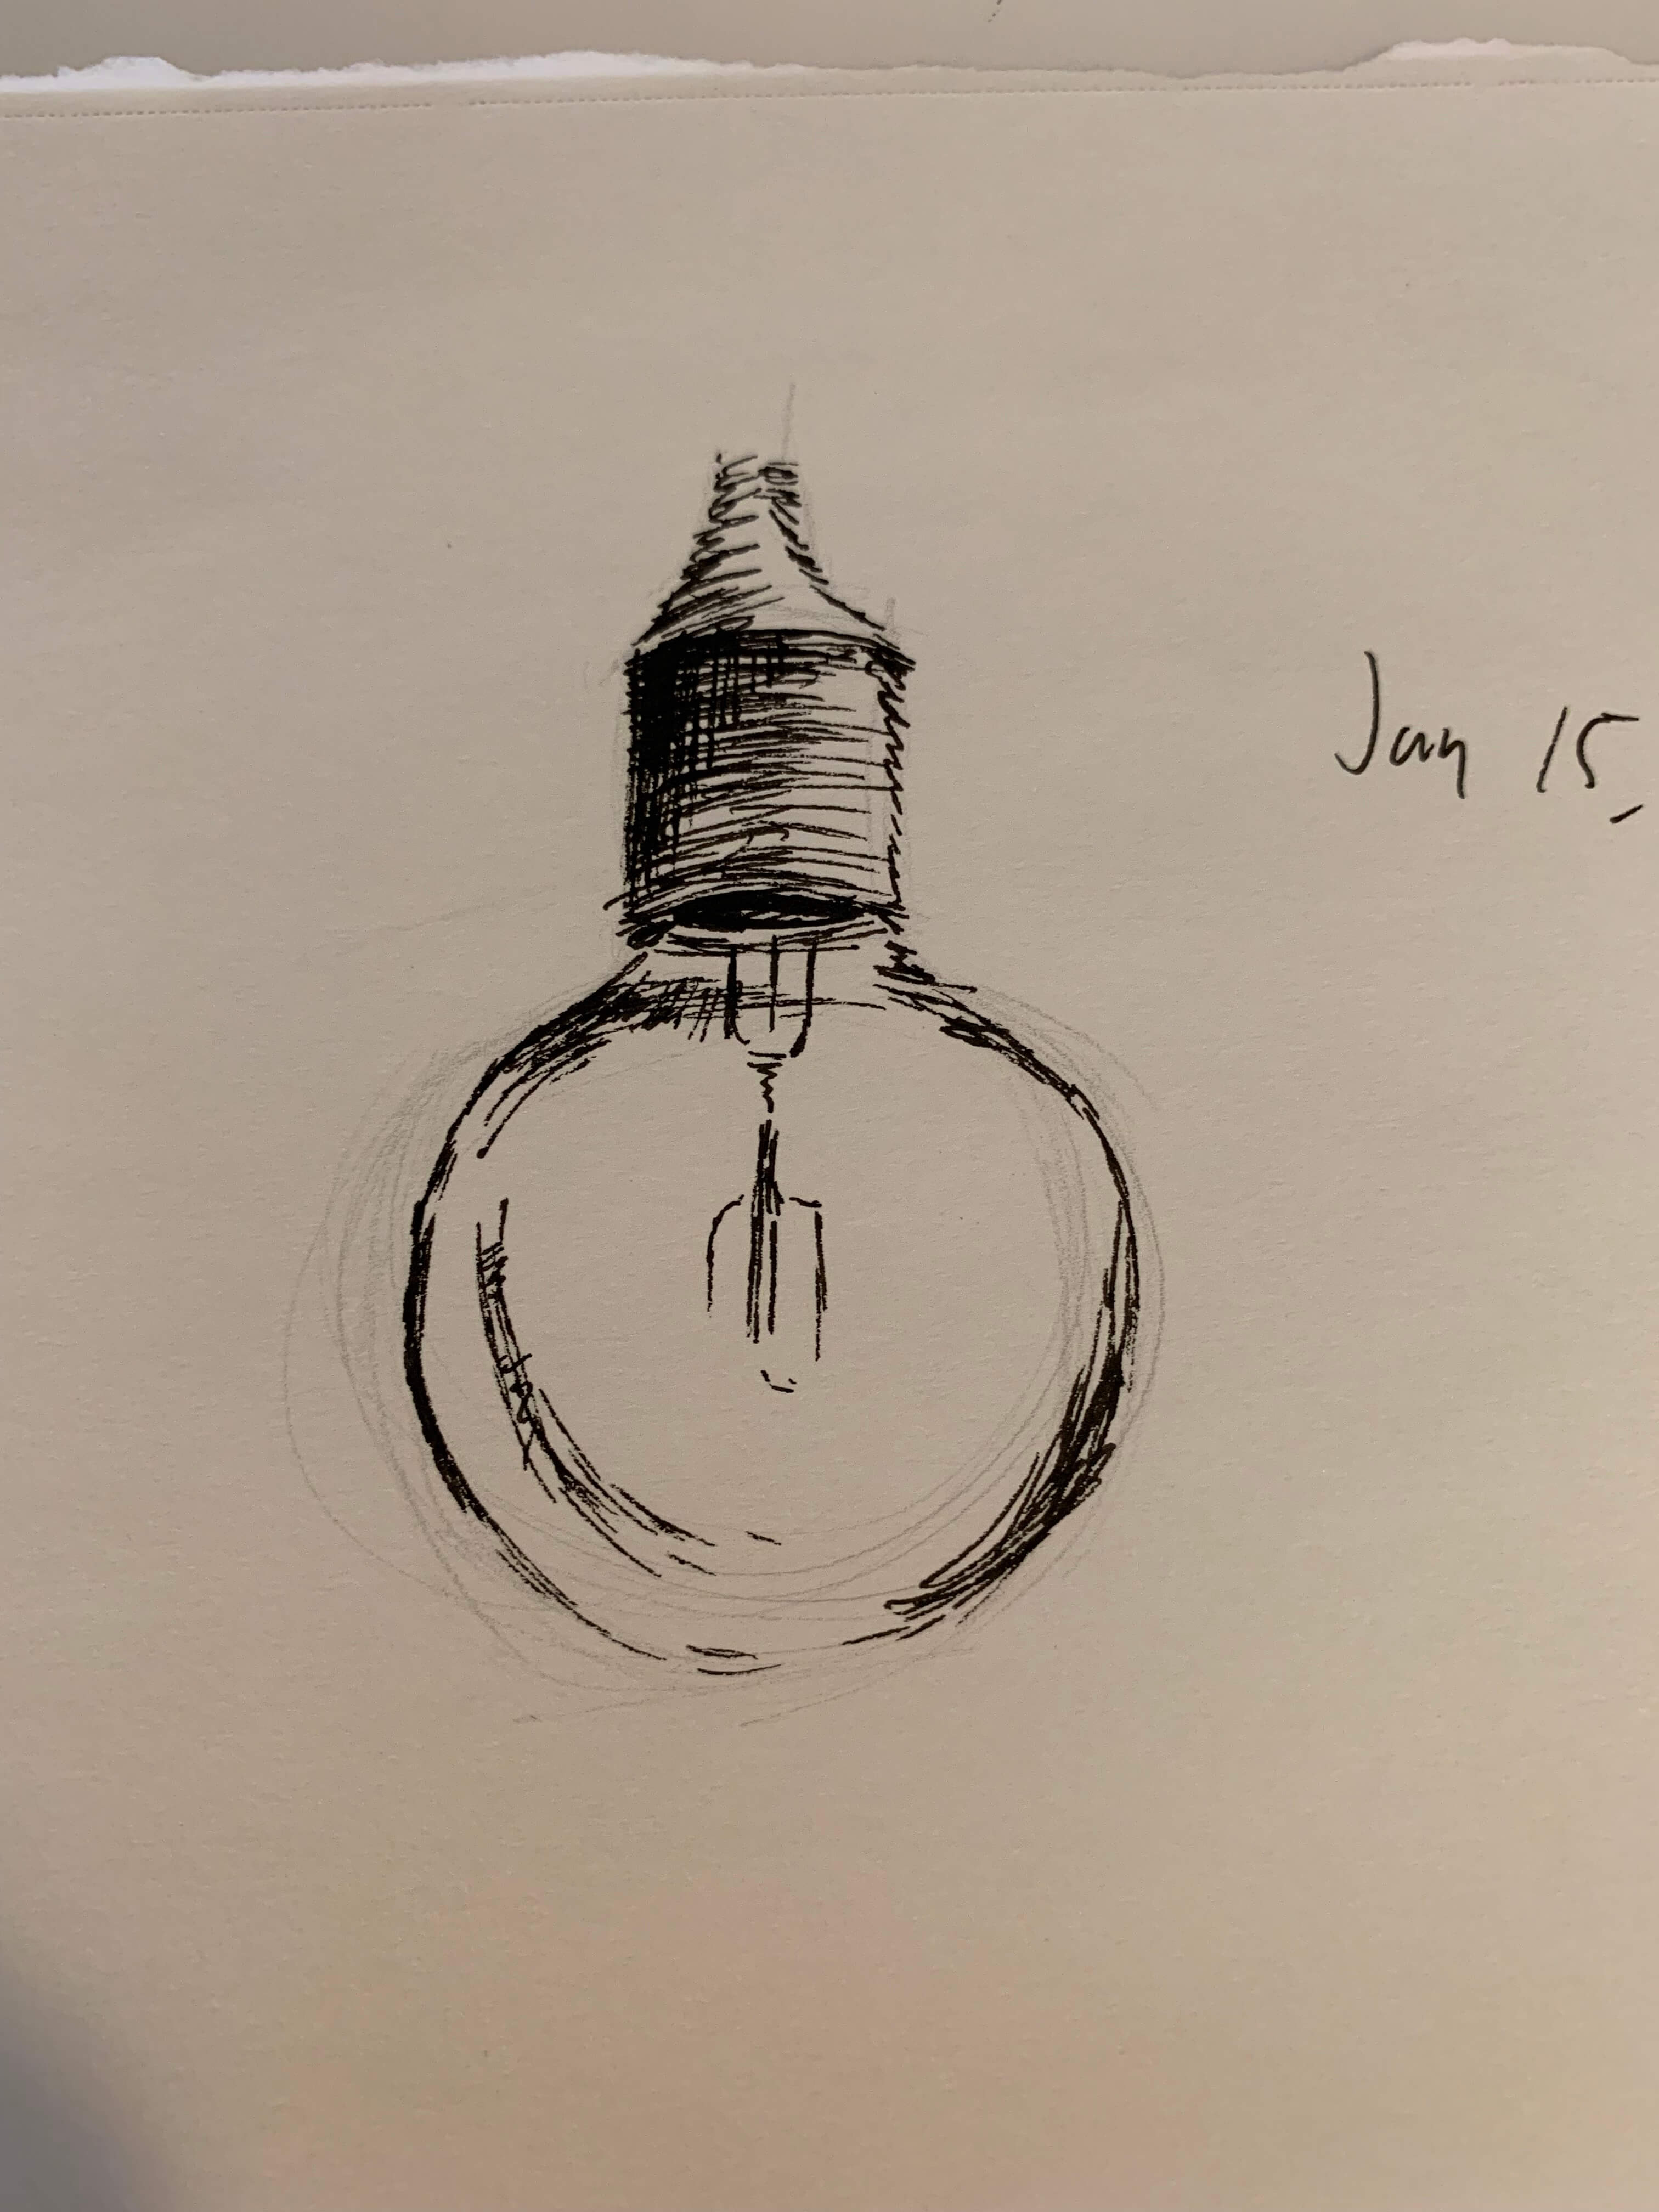 Jan 15,